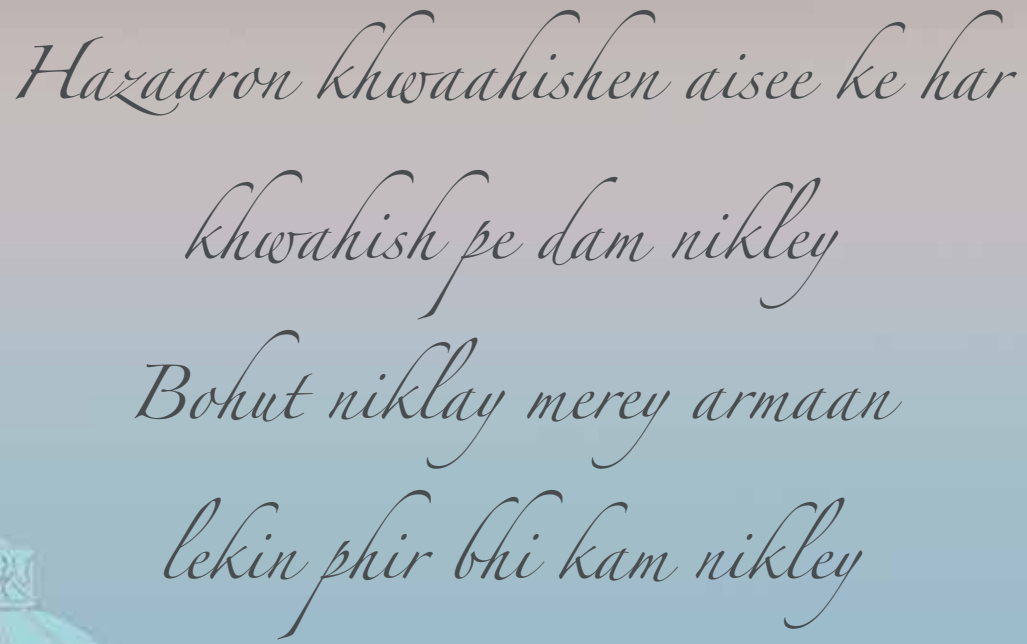 Hazaaron khwaahishen aisee ke har
khwahish pe dam nikley
Bohut niklay merey armaan
lekin phir bhi kam nikley